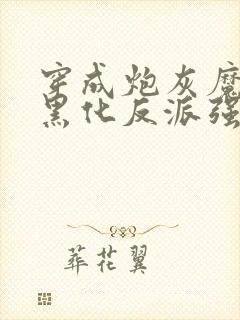 穿成炮灰魔
黑化反派强
葬花翼